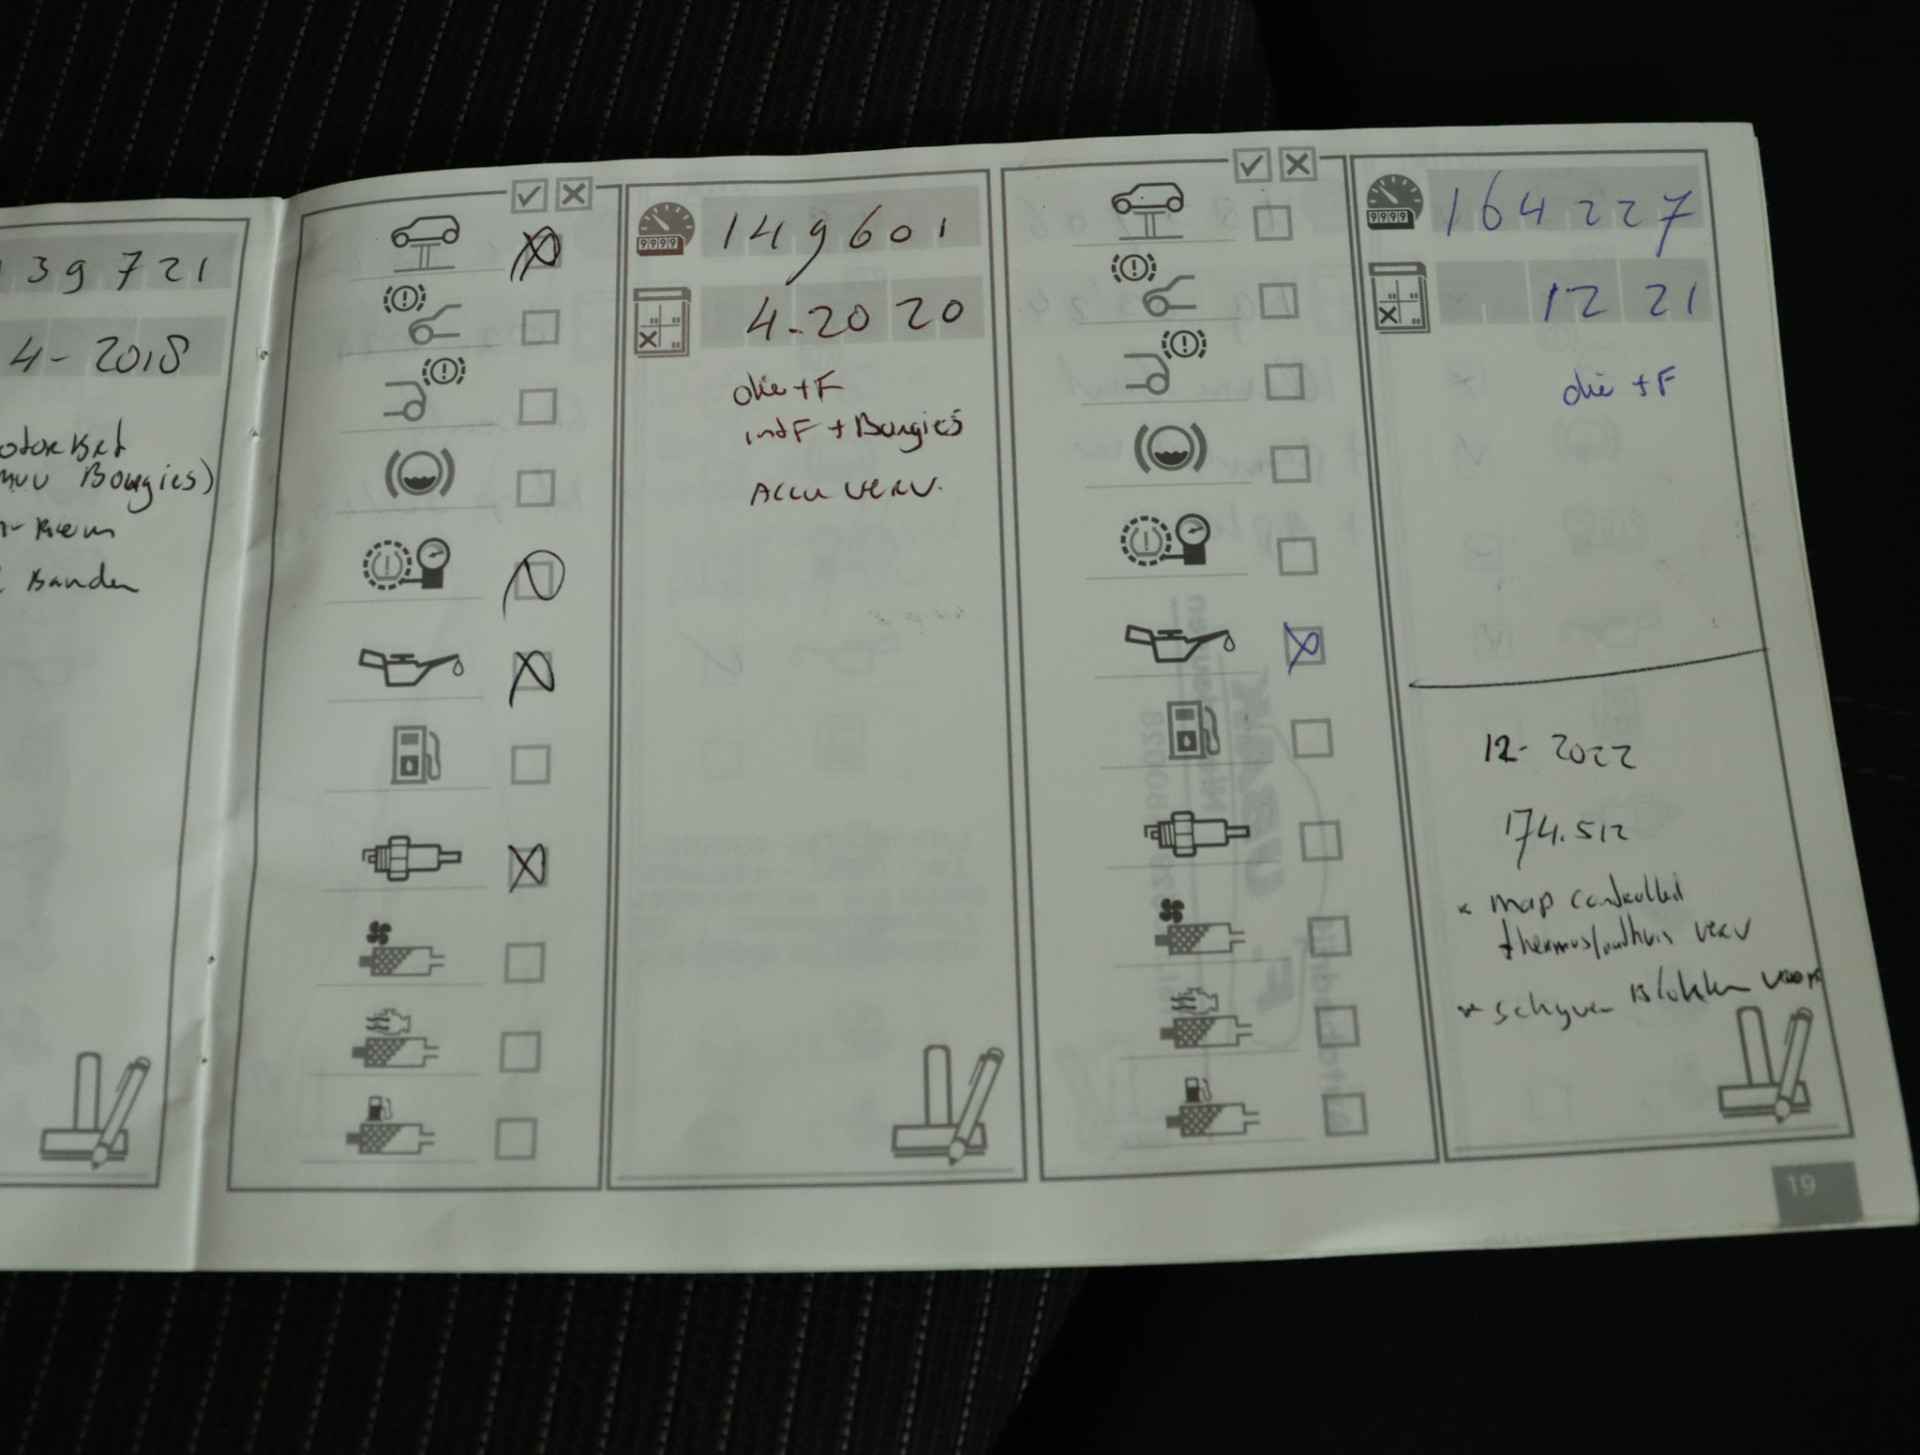 139721
4-2018
Bougies)
Banden
9999
149601
4-2020
olie + F
intF + Bougies
Accu verv.
9999
164227
12 21
olie + F
12-2022
174.512
* map controlled
thermos/aathuis verv
* schyven Blokken voor
19